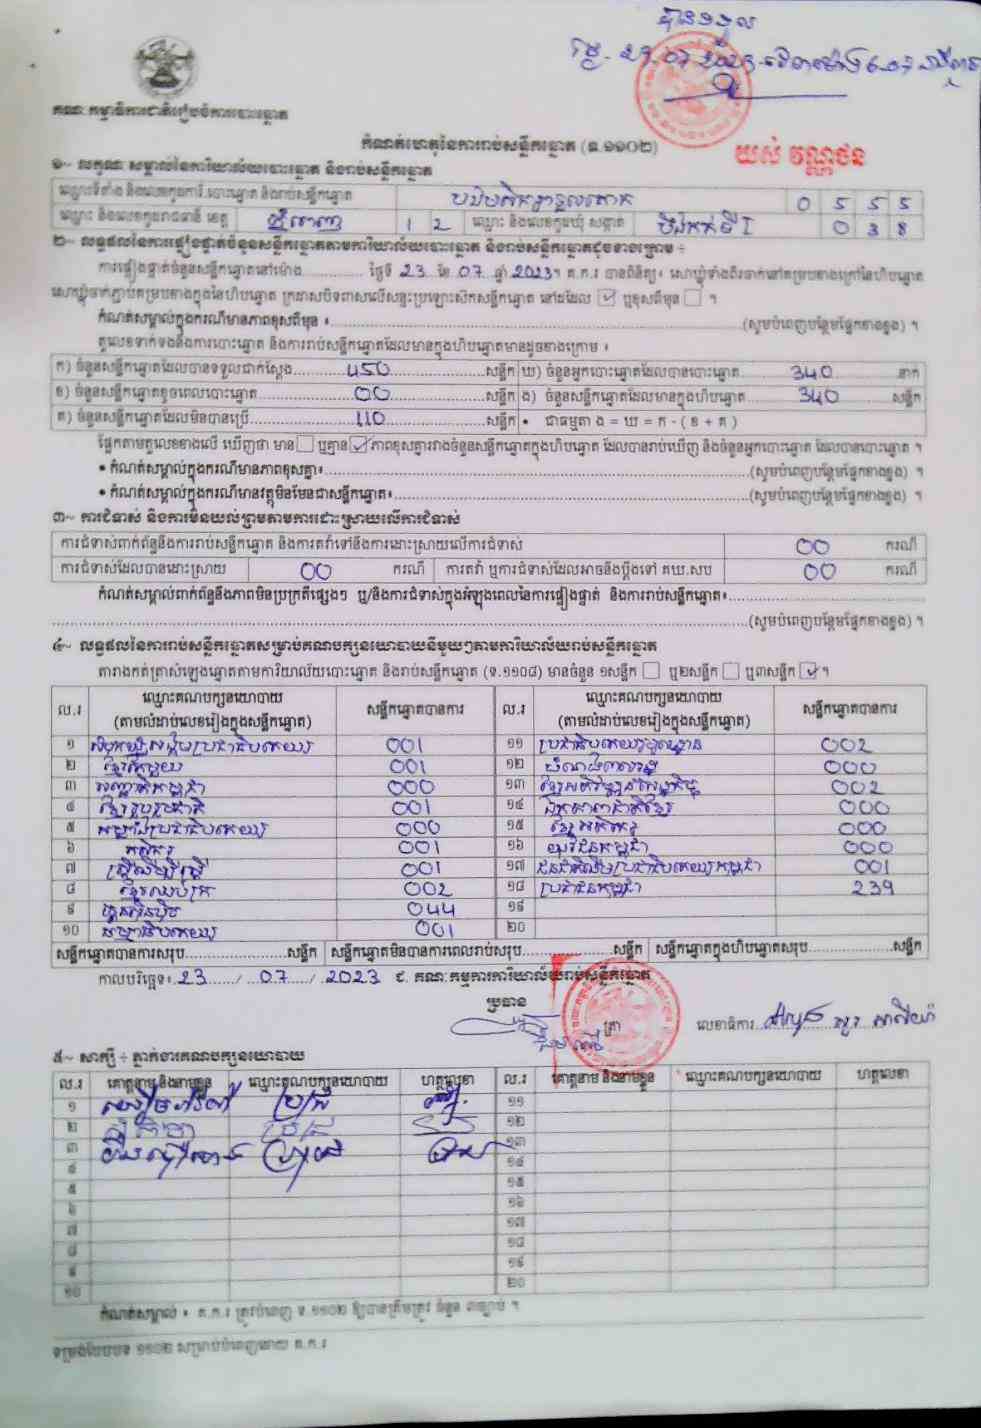 បានទទួល
គណៈកម្មាធិការជាតិរៀបចំការបោះឆ្នោត
កំណត់ហេតុនៃការរាប់សន្លឹកឆ្នោត (ទ.១១០២)
យស់ វណ្ណថន
១~ លក្ខណៈសម្គាល់នៃការិយាល័យបោះឆ្នោត និងរាប់សន្លឹកឆ្នោត
ឈ្មោះទីតាំង និងលេខកូដការិ.បោះឆ្នោត និងរាប់សន្លឹកឆ្នោត 0 5 5 5
ឈ្មោះ និងលេខកូដរាជធានី ខេត្ត ភ្នំពេញ 1 2 ឈ្មោះ និងលេខកូដឃុំ សង្កាត់ បឹងកក់ទី I 0 3 8
២~ លទ្ធផលនៃការផ្ទៀងផ្ទាត់ចំនួនសន្លឹកឆ្នោតតាមការិយាល័យបោះឆ្នោត និងរាប់សន្លឹកឆ្នោតដូចខាងក្រោម ÷
ការផ្ទៀងផ្ទាត់ចំនួនសន្លឹកឆ្នោតនៅម៉ោង.............. ថ្ងៃទី 23 ខែ 07 ឆ្នាំ 2023។ គ.ក.រ បានពិនិត្យ៖ សោឃ្លុំទាំងពីរចាក់នៅគម្របខាងក្រៅនៃហិបឆ្នោត
សោឃ្លុំចាក់ភ្ជាប់គម្របខាងក្នុងនៃហិបឆ្នោត ក្រដាសបិទពាសលើសន្ទះប្រឡោះសិកសន្លឹកឆ្នោត នៅដដែល ☑ ឬខុសពីមុន ☐ ។
កំណត់សម្គាល់ក្នុងករណីមានភាពខុសពីមុន ៖..............(សូមបំពេញបន្ថែមផ្នែកខាងខ្នង) ។
តួលេខទាក់ទងនឹងការបោះឆ្នោត និងការរាប់សន្លឹកឆ្នោតដែលមានក្នុងហិបឆ្នោតមានដូចខាងក្រោម ៖
ក) ចំនួនសន្លឹកឆ្នោតដែលបានទទួលជាក់ស្តែង 450 សន្លឹក ឃ) ចំនួនអ្នកបោះឆ្នោតដែលបានបោះឆ្នោត 340 នាក់
ខ) ចំនួនសន្លឹកឆ្នោតខូចពេលបោះឆ្នោត 00 សន្លឹក ង) ចំនួនសន្លឹកឆ្នោតដែលមានក្នុងហិបឆ្នោត 340 សន្លឹក
គ) ចំនួនសន្លឹកឆ្នោតដែលមិនបានប្រើ 110 សន្លឹក • ជាធម្មតា ង = ឃ = ក - ( ខ + គ )
ផ្អែកតាមតួលេខខាងលើ ឃើញថា មាន ☐ ឬគ្មាន ☑ ភាពខុសគ្នារវាងចំនួនសន្លឹកឆ្នោតក្នុងហិបឆ្នោត ដែលបានរាប់ឃើញ និងចំនួនអ្នកបោះឆ្នោត ដែលបានបោះឆ្នោត ។
• កំណត់សម្គាល់ក្នុងករណីមានភាពខុសគ្នា៖..............(សូមបំពេញបន្ថែមផ្នែកខាងខ្នង) ។
• កំណត់សម្គាល់ក្នុងករណីមានវត្ថុមិនមែនជាសន្លឹកឆ្នោត៖..............(សូមបំពេញបន្ថែមផ្នែកខាងខ្នង) ។
៣~ ការជំទាស់ និងការមិនយល់ព្រមតាមការដោះស្រាយលើការជំទាស់
ការជំទាស់ពាក់ព័ន្ធនឹងការរាប់សន្លឹកឆ្នោត និងការតវ៉ាទៅនឹងការដោះស្រាយលើការជំទាស់ 00 ករណី
ការជំទាស់ដែលបានដោះស្រាយ 00 ករណី ការតវ៉ា ឬការជំទាស់ដែលអាចនឹងប្តឹងទៅ គឃ.សប 00 ករណី
កំណត់សម្គាល់ពាក់ព័ន្ធនឹងភាពមិនប្រក្រតីផ្សេងៗ ឬ/និងការជំទាស់ក្នុងអំឡុងពេលនៃការផ្ទៀងផ្ទាត់ និងការរាប់សន្លឹកឆ្នោត៖..............
..............(សូមបំពេញបន្ថែមផ្នែកខាងខ្នង) ។
៤~ លទ្ធផលនៃការរាប់សន្លឹកឆ្នោតសម្រាប់គណបក្សនយោបាយនីមួយៗតាមការិយាល័យរាប់សន្លឹកឆ្នោត
តារាងកត់ត្រាសំឡេងឆ្នោតតាមការិយាល័យបោះឆ្នោត និងរាប់សន្លឹកឆ្នោត (ទ.១១០៨) មានចំនួន ១សន្លឹក ☐ ឬ២សន្លឹក ☐ ឬ៣សន្លឹក ☑ ។
ល.រ ឈ្មោះគណបក្សនយោបាយ (តាមលំដាប់លេខរៀងក្នុងសន្លឹកឆ្នោត) សន្លឹកឆ្នោតបានការ ល.រ ឈ្មោះគណបក្សនយោបាយ (តាមលំដាប់លេខរៀងក្នុងសន្លឹកឆ្នោត) សន្លឹកឆ្នោតបានការ
១ 001 ១១ 002
២ ខ្មែរតែមួយ 001 ១២ 000
៣ 000 ១៣ 002
៤ ខ្មែររួបរួមជាតិ 001 ១៤ ឯកភាពជាតិខ្មែរ 000
៥ 000 ១៥ ខ្មែរអភិរក្ស 000
៦ កសិករ 001 ១៦ យុវជនកម្ពុជា 000
៧ ស្ត្រីដើម្បីស្ត្រី 001 ១៧ ជនជាតិដើមប្រជាធិបតេយ្យកម្ពុជា 001
៨ ខ្មែរឈប់ក្រ 002 ១៨ ប្រជាជនកម្ពុជា 239
៩ ហ៊្វុនស៊ិនប៉ិច 044 ១៩
១០ ធម្មាធិបតេយ្យ 001 ២០
សន្លឹកឆ្នោតបានការសរុប..............សន្លឹក សន្លឹកឆ្នោតមិនបានការពេលរាប់សរុប..............សន្លឹក សន្លឹកឆ្នោតក្នុងហិបឆ្នោតសរុប..............សន្លឹក
កាលបរិច្ឆេទ៖ 23 / 07 / 2023 ជ. គណៈកម្មការការិយាល័យរាប់សន្លឹកឆ្នោត
ប្រធាន
ត្រា លេខាធិការ
៥~ សាក្សី ÷ ភ្នាក់ងារគណបក្សនយោបាយ
ល.រ គោត្តនាម និងនាមខ្លួន ឈ្មោះគណបក្សនយោបាយ ហត្ថលេខា ល.រ គោត្តនាម និងនាមខ្លួន ឈ្មោះគណបក្សនយោបាយ ហត្ថលេខា
១ ១១
២ ១២
៣ ១៣
៤ ១៤
៥ ១៥
៦ ១៦
៧ ១៧
៨ ១៨
៩ ១៩
១០ ២០
កំណត់សម្គាល់ ៖ គ.ក.រ ត្រូវបំពេញ ទ.១១០២ ឱ្យបានត្រឹមត្រូវ ចំនួន ៣ច្បាប់ ។
ទម្រង់បែបបទ ១១០២ សម្រាប់បំពេញដោយ គ.ក.រ